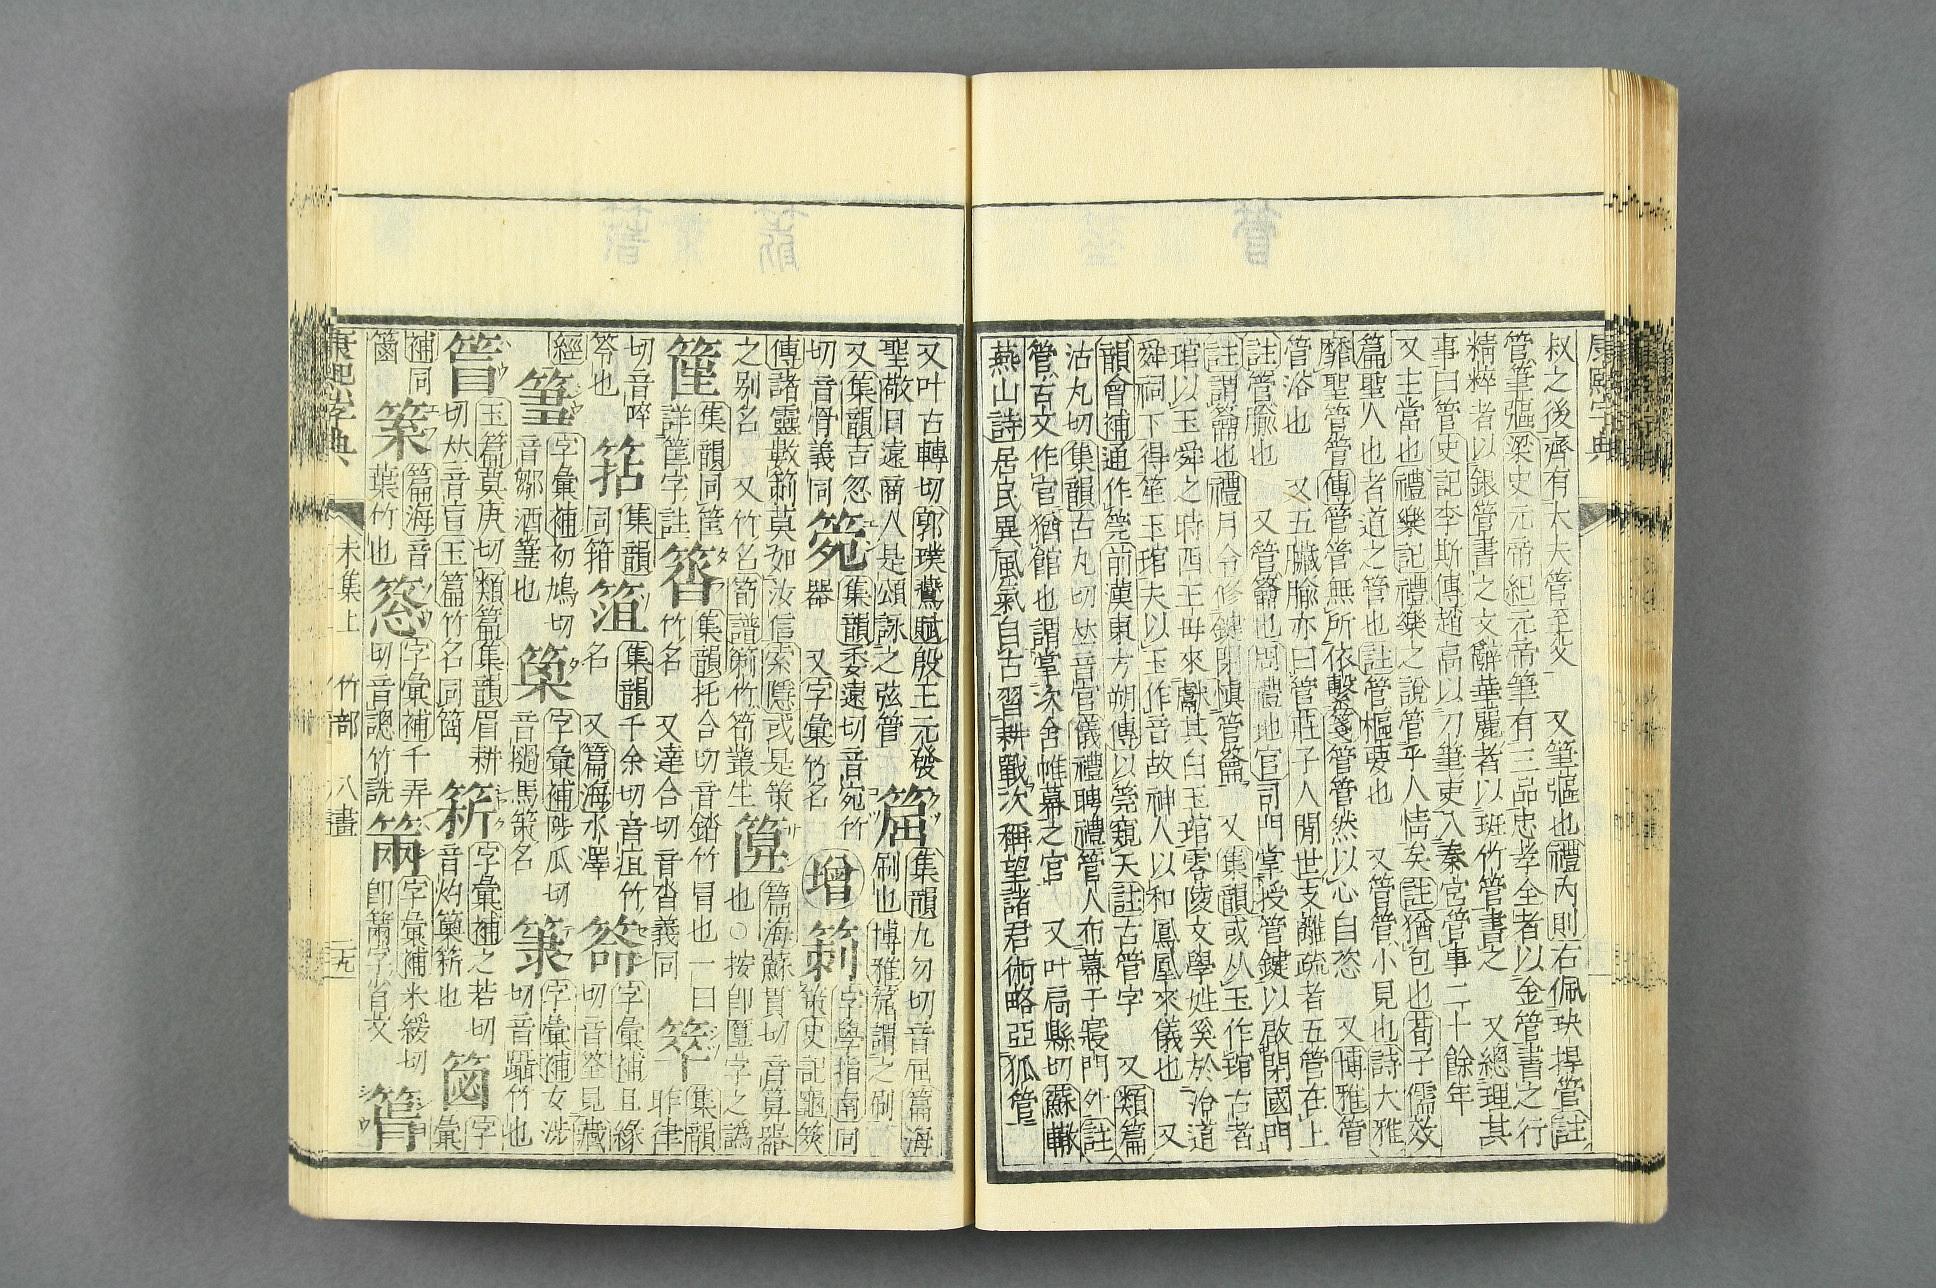 叔之後齊有大夫管至父 又筆彄也禮內則右佩玦捍管註
管筆彄梁史元帝紀元帝筆有三品忠孝全者以金管書之行
精粹者以銀管書之文辭華麗者以班竹管書之 又總理其
事曰管史記李斯傳趙高以刀筆吏入秦宮管事二十餘年
又主當也禮樂記禮樂之說管乎人情矣註猶包也荀子儒效
篇聖人也者道之管也註管樞要也 又管管小見也詩大雅
靡聖管管傳管管無所依繫箋管管然以心自恣 又博雅管
管浴也 又五臟腧亦曰管莊子人閒世支離疏者五管在上
註管腧也 又管籥也周禮地官司門掌授管鍵以啟閉國門
註謂籥也禮月令修鍵閉愼管籥 又集韻或从玉作琯古者
琯以玉舜之時西王母來獻其白玉琯零陵文學姓奚於泠道
舜祠下得笙玉琯夫以玉作音故神人以和鳳凰來儀也 又
韻會補通作筦前漢東方朔傳以筦窺天註古管字 又類篇
沽丸切集韻古丸切𠀤音官儀禮聘禮管人布幕于寢門外註
管古文作官猶館也謂掌次舍帷幕之官 又叶扃縣切蘇轍
燕山詩居民異風氣自古習耕戰次稱望諸君術略亞狐管
又叶古轉切郭璞鷽賦殷王元發
聖敬日遠商人是頌詠之弦管
集韻九勿切音屈篇海
刷也博雅篦謂之刷
又集韻古忽
切音骨義同
集韻委遠切音宛竹
器 又字彙竹名
增
字學指南同
策史記龜筴
傳諸靈數莿莫如汝信索隱或是策
之別名 又竹名筍譜莿竹筍叢生
篇海蘇貫切音算器
也○按卽匴字之譌
集韻同筐
詳筐字註
集韻托合切音錔竹冒也一曰
竹名 又達合切音沓義同
集韻
昨律
切音啐
笒也
集韻
同箝
集韻千余切音疽竹
名 又篇海水澤
字彙補且緣
切音筌見藏
經
字彙補初鳩切
音鄒酒篘也
字彙補陟瓜切
音撾馬策名
字彙補女涉
切音躡竹也
玉篇莫庚切類篇集韻眉耕
切𠀤音盲玉篇竹名同䈍
字彙補之若切
音灼築箹也
字彙
補同
篇海音
葉竹也
字彙補千弄
切音謥竹詵
字彙補米緩切
卽䉲字省文
康熙字典 未集上 竹部 八畫 二九